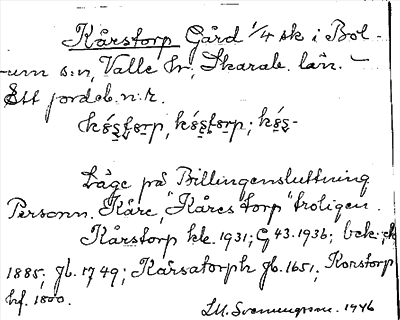 Kårstorp Gård 1/4 sk i Bol-
um s:n, Valle hr, Skarab. län. –
Ett jordeb. n:r.
Läge på Billingensluttning
Personn. Kåre, "Kåres torp" troligen.
Kårstorp kk. 1931; G 43. 1936; bek. ek
1885, gb. 1749; Kårsatorph gb. 1651; Korstorp
hf. 1800.
1946